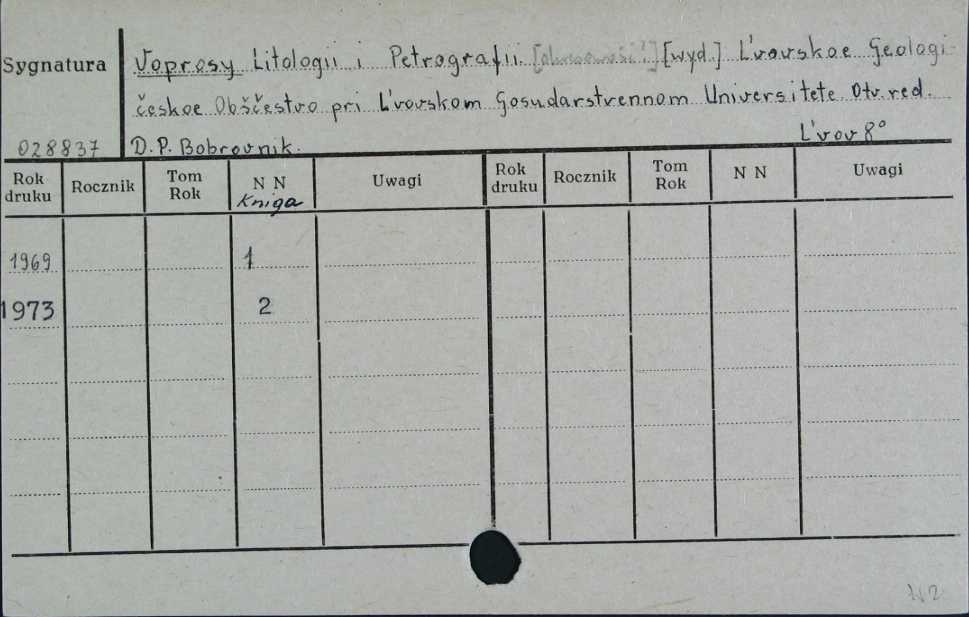 Sygnatura
Voprosy Litologii i Petrografii. [wyd.] L'vovskoe Geologi-
českoe Obščestvo pri L'vovskom Gosudarstvennom Universitete Otv. red.
028837 D.P. Bobrovnik. L'vov 8°
Rok druku Rocznik Tom Rok N N Kniga Uwagi Rok druku Rocznik Tom Rok N N Uwagi
1969 1
1973 2